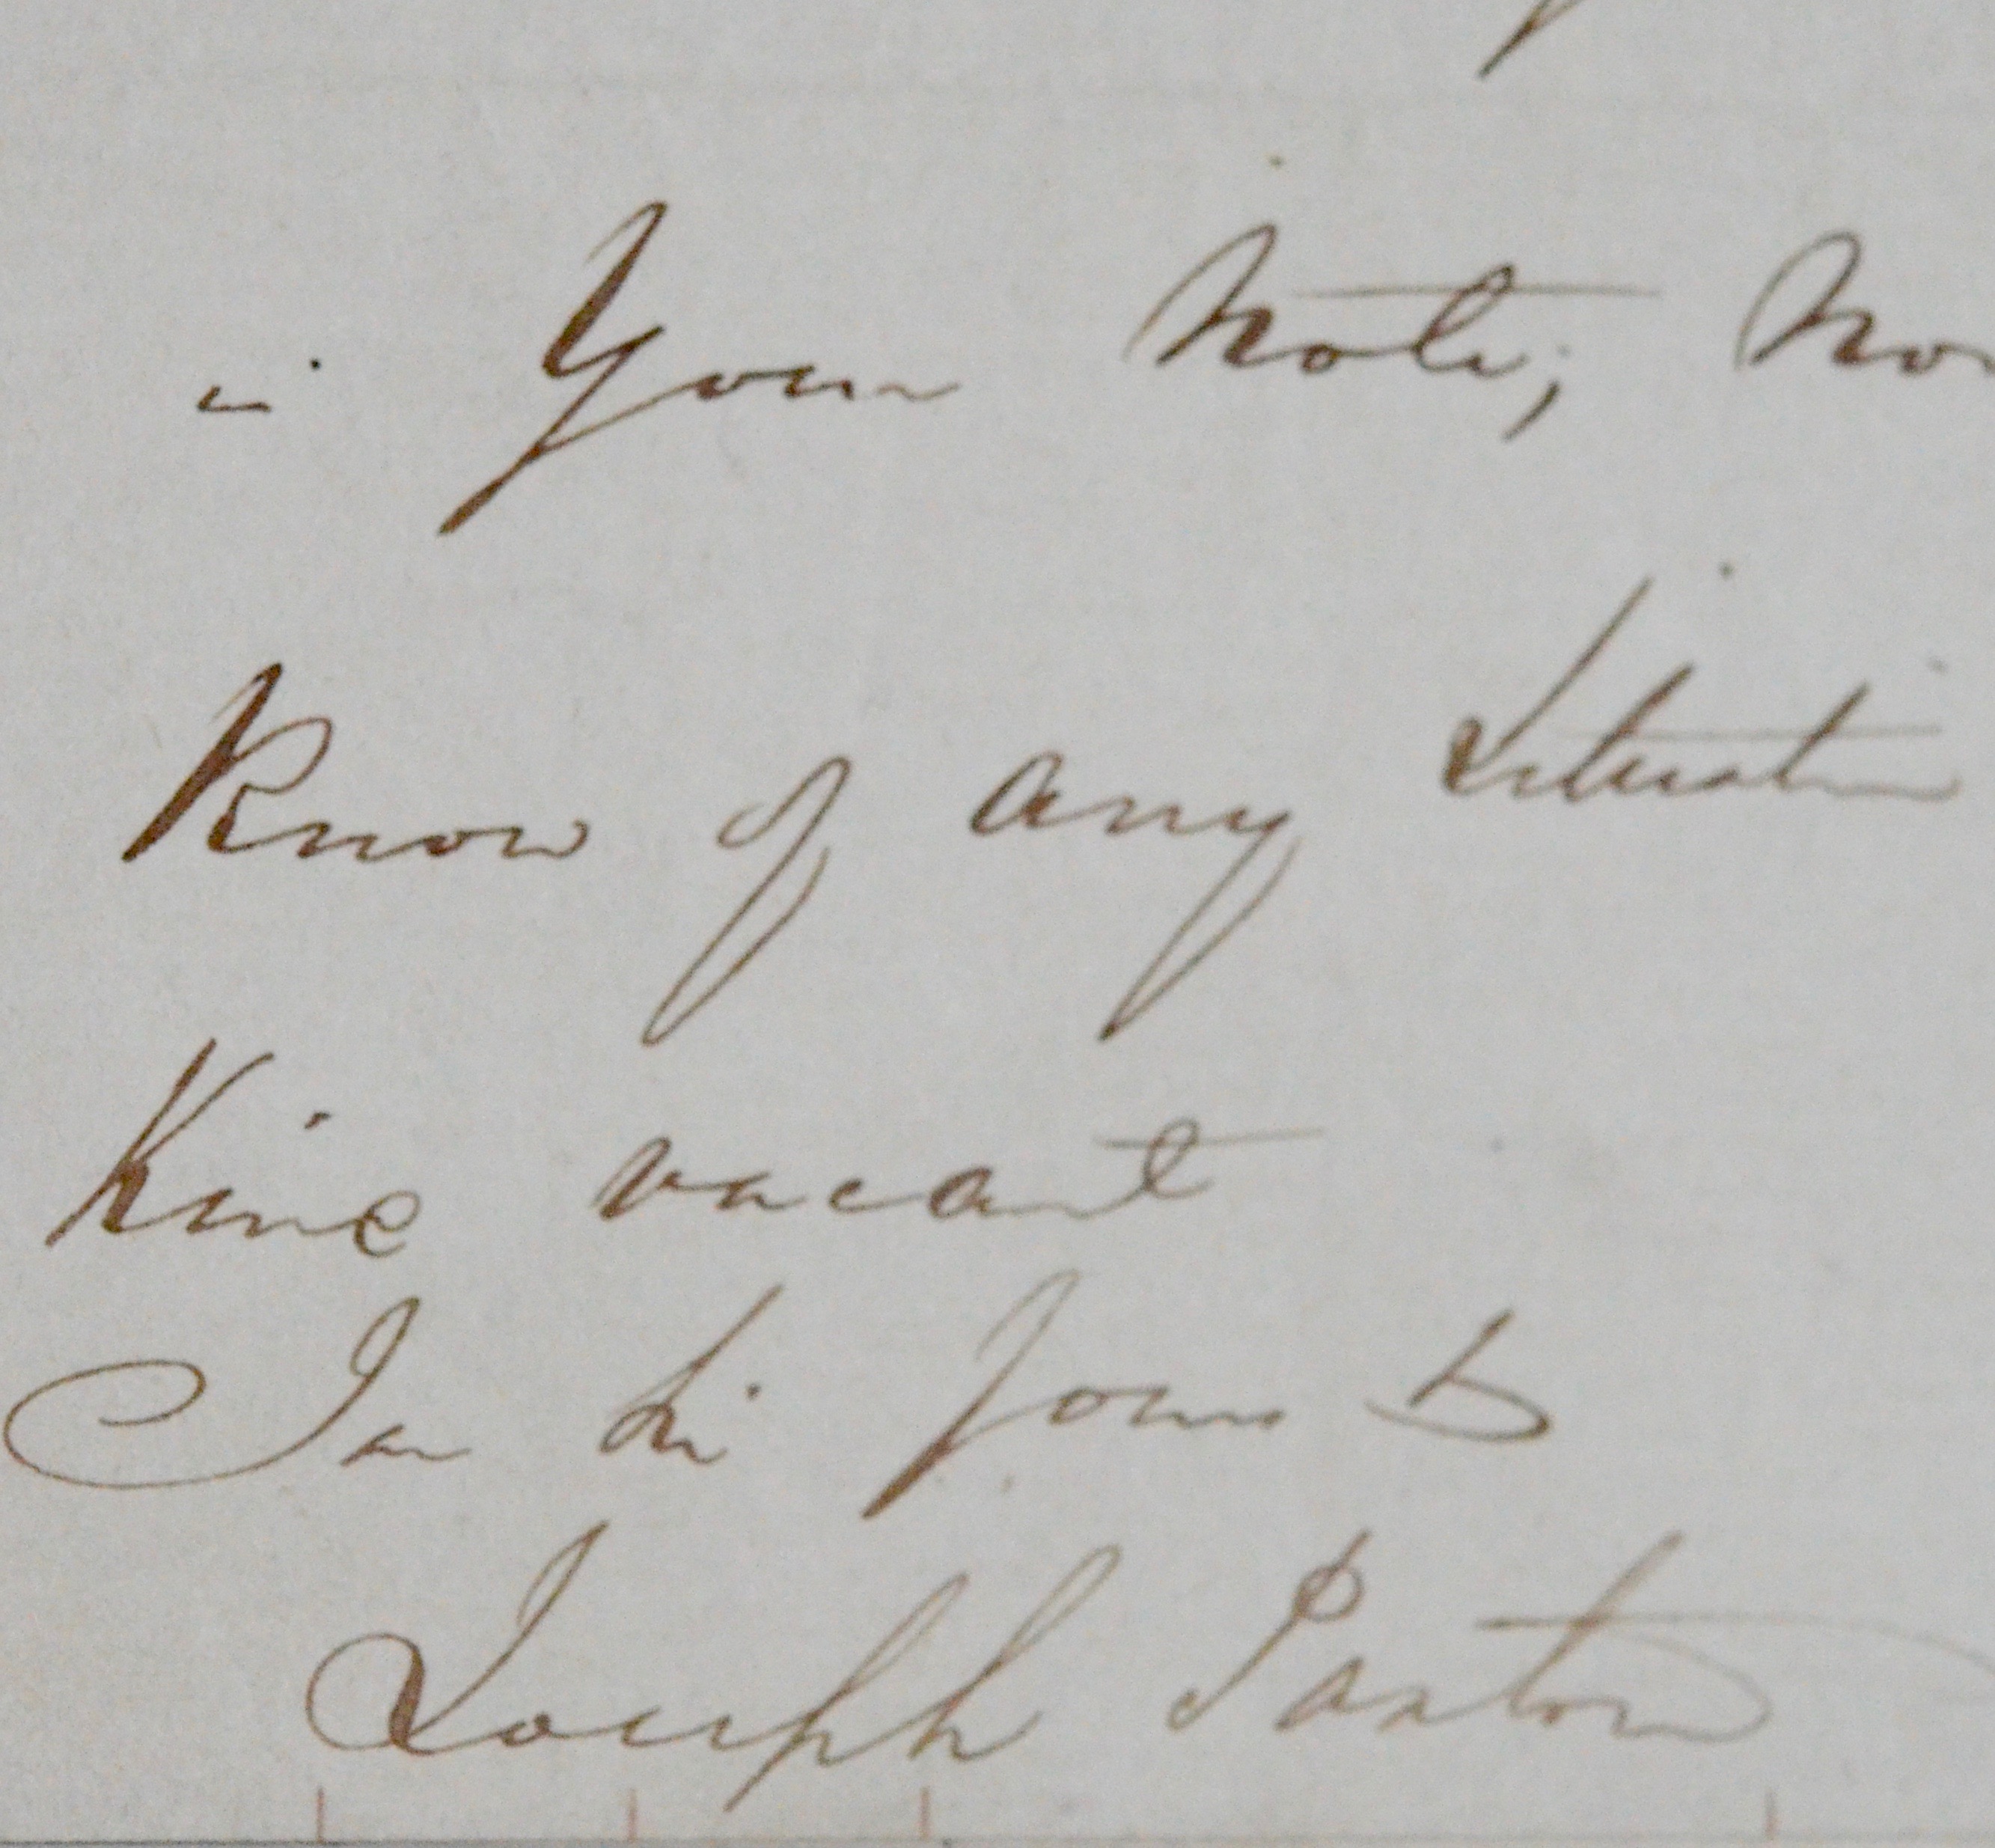 in Your Note; No
Know of any Situation
Kind vacant
I am Sir Yours &
Joseph Paxton